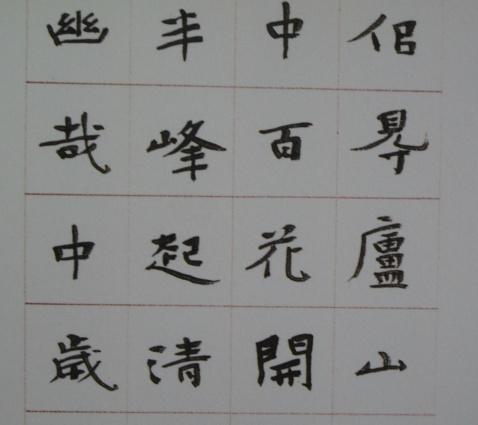 佀䙷廬山
中百花開
半峰起清
幽哉中歲